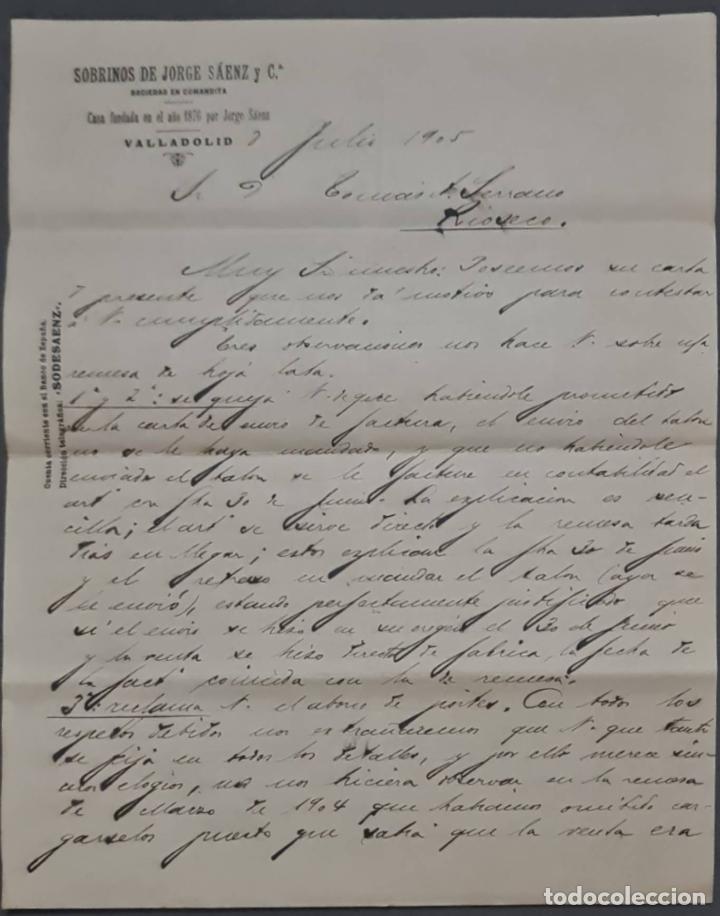 SOBRINOS DE JORGE SÁENZ y C.ª
SOCIEDAD EN COMANDITA
Casa fundada en el año 1876 por Jorge Sáenz
VALLADOLID 7 Julio 1905
Sr D Tomás A. Serrano
Rioseco.
Muy Sr nuestro: Poseemos su carta
presente que nos da motivo para contestar
a V. cumplidamente.
Tres observaciones nos hace V. sobre
remesa de hoja lata.
1ª y 2ª: se queja V. de que habiéndole prometido
en la carta de envio de factura, el envio del talon
no se le haya mandado, y que no habiéndole
enviado el talon se le facture en contabilidad el
artº con fha 30 de Junio. La explicacion es sen-
cilla; el artº se sirve directo y la remesa tarda
dias en llegar; estos explican la fha 30 de Junio
y el retraso en mandar el talon (ayer se
le envió), estando perfectamente justificado que
si el envio se hizo en su origen el 30 de Junio
y la venta se hizo directa de fabrica, la fecha de
la factª coincida con la de remesa.
3ª: reclama V. el abono de portes. Con todos los
respetos debidos nos extrañaremos que V. que tanto
se fija en todos los detalles, y por ello merece sin-
ceros elogios, no nos hiciera observar en la remesa
de Marzo de 1904 que habiamos omitido car-
garselos puesto que sabia que la venta era
Cuenta corriente con el Banco de España.
Dirección telegráfica: «SODESAENZ».
todocoleccion
todocoleccion.net